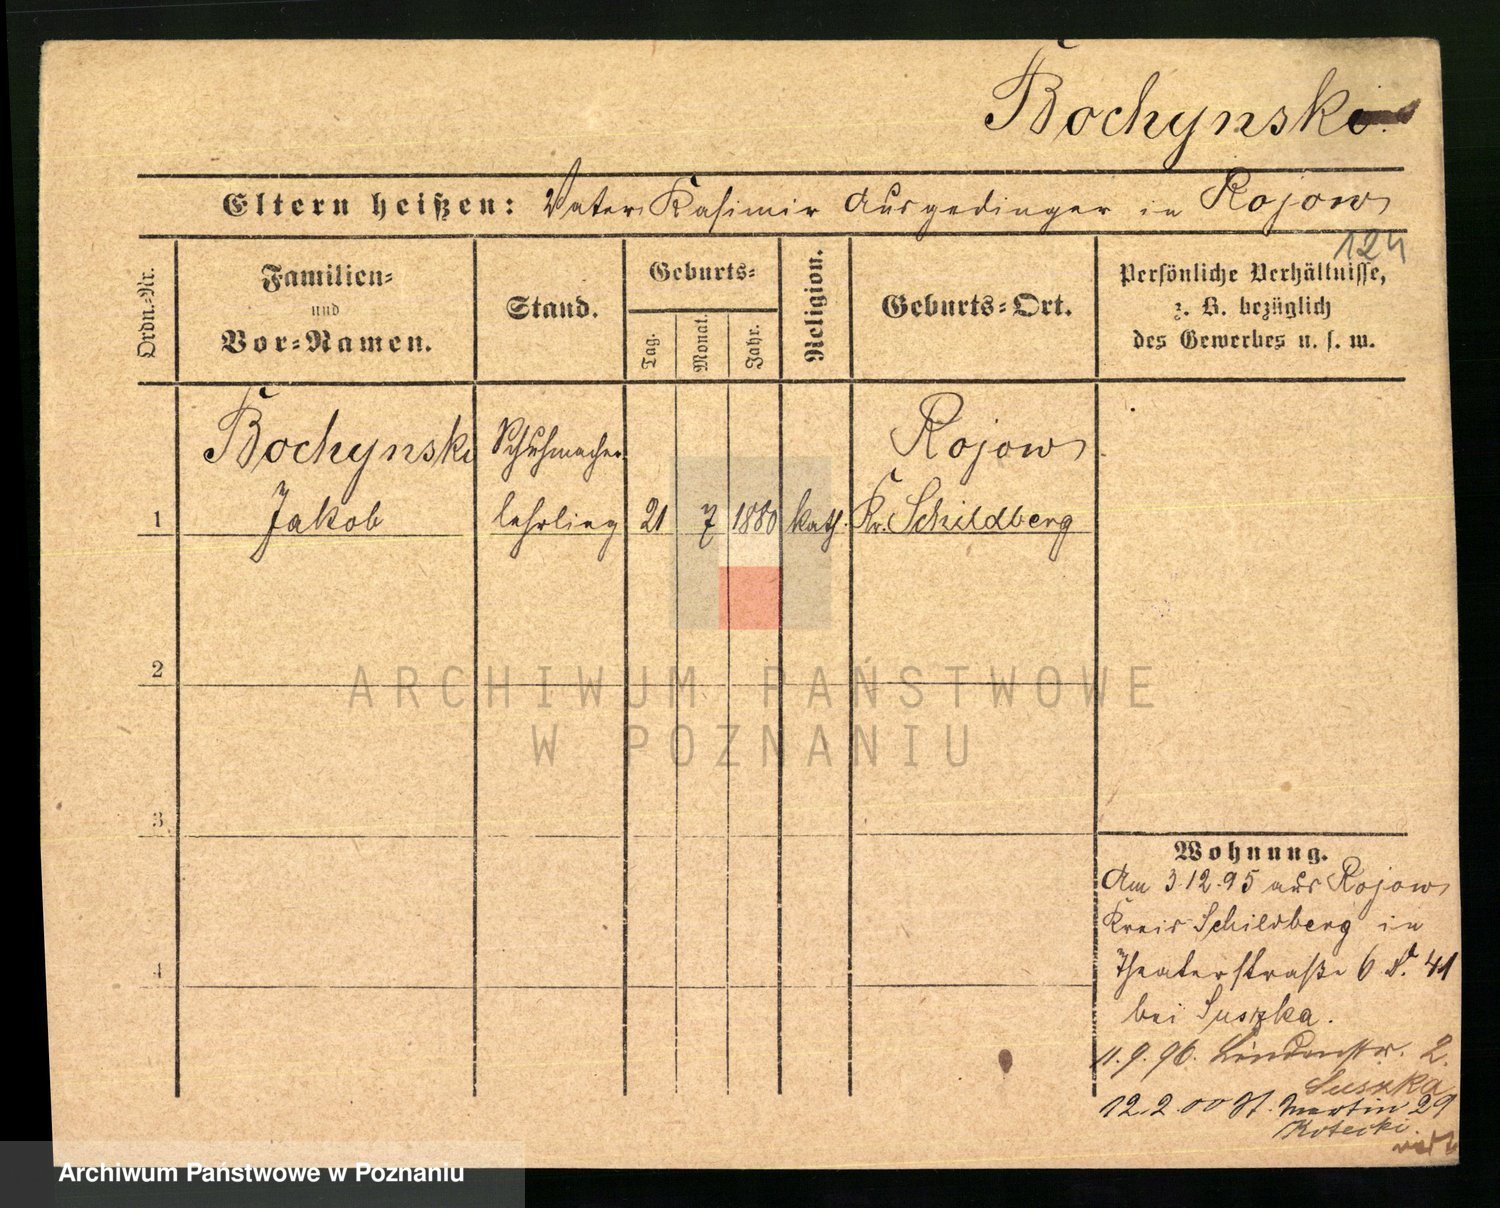 Bochynski
Eltern heißen: Vater Kasimir Ausgedinger in Rojow
124
Ordn.=Nr.
Familien=
und
Vor=Namen.
Stand.
Geburts=
Tag.
Monat.
Jahr.
Religion.
Geburts=Ort.
Persönliche Verhältnisse,
z. B. bezüglich
des Gewerbes u. s. w.
Bochynski Schuhmacher Rojow
1 Jakob lehrling 21 7 1880 kath. Kr. Schildberg
2
3
4
ARCHIWUM PAŃSTWOWE
W POZNANIU
Wohnung.
Am 3.12.95 aus Rojow
Kreis Schildberg in
Theaterstraße 6 41
bei Suszka.
11.9.96. Lindenstr. 2.
Suszka
12.2.00 St. Martin 29
Kotecki.
Archiwum Państwowe w Poznaniu